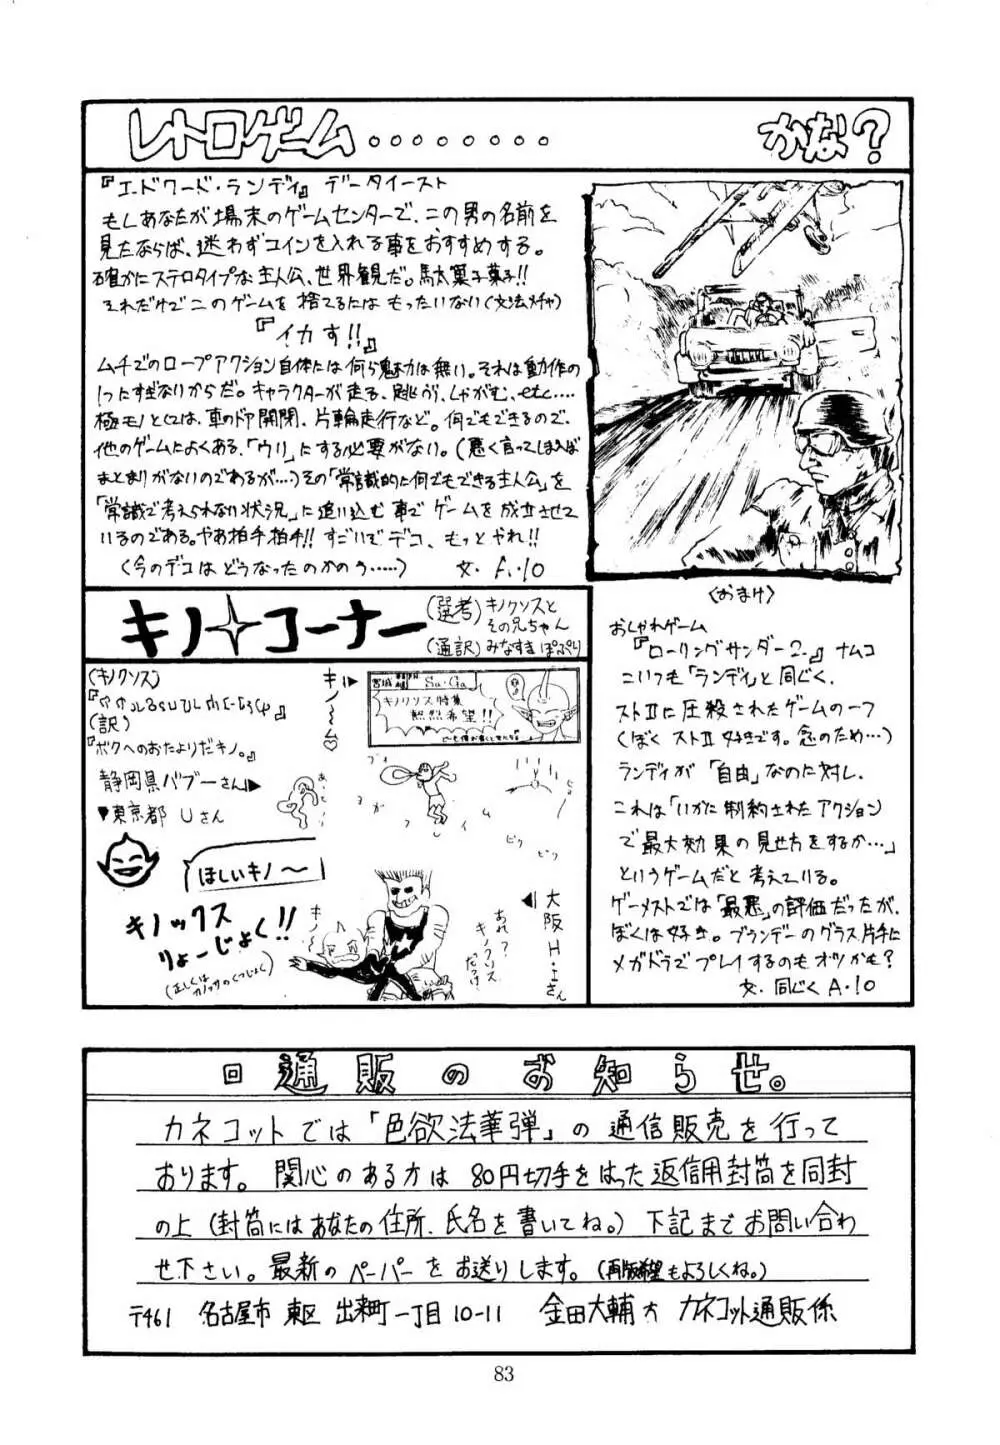 レトロゲーム........ かな?
『エドワード・ランディ』 データイースト
もしあなたが場末のゲームセンターで、この男の名前を
見たならば、迷わずコインを入れる事をおすすめする。
確かにステロタイプな主人公、世界観だ。駄菓子菓子!!
それだけでこのゲームを捨てるにはもったいない(文法メチャ)
『イカす!!』
ムチでのロープアクション自体には何ら魅力は無い。それは動作の
1つにすぎないからだ。キャラクターが走る、跳ぶ、しゃがむ、etc....
極モノとしては、車のドア開閉、片輪走行など。何でもできるので、
他のゲームによくある、「ウリ」にする必要がない。(悪く言ってしまえば
まとまりがないのであるが・・・)その「常識的に何でもできる主人公」を
「常識で考えられない状況」に追い込む事でゲームを成立させて
いるのである。やあ拍手拍手!! すごいぞデコ、もっとやれ!!
(今のデコはどうなったのかのう・・・・・) 文. A.10
キノ コーナー
(選考) キノクソスと
その兄ちゃん
(通訳) みなずき ぽぷり
(キノクソス)
(訳)
『ボクへのおたよりだキノ。』
静岡県バブーさん
東京都 Uさん
キノ〜〜ム♡
宮城 Su・Ga
キノクソス特集
熱烈希望!!
ブイ
ピク
ピク
ほしいキノ〜
キノックス
りょーじょく!!
(正しくは
キノ
あれ?
キノクソス
だっけ
大阪H・Iさん
〈おまけ〉
おしゃれゲーム
『ローリングサンダー2.』 ナムコ
こいつも「ランディ」と同じく、
ストⅡに圧殺されたゲームの一つ
(ぼくストⅡ好きです。念のため…)
ランディが「自由」なのに対し、
これは「いかに制約されたアクション
で最大効果の見せ方をするか…」
というゲームだと考えている。
ゲーメストでは「最悪」の評価だったが、
ぼくは好き。ブランデーのグラス片手に
メガドラでプレイするのもオツかも?
文. 同じく A.10
回通販のお知らせ。
カネコットでは「色欲法華弾」の通信販売を行って
おります。関心のある方は80円切手をはった返信用封筒を同封
の上(封筒にはあなたの住所、氏名を書いてね。)下記までお問い合わ
せ下さい。最新のペーパーをお送りします。(再版希望もよろしくね。)
〒461 名古屋市 東区 出来町一丁目10-11 金田大輔方 カネコット通販係
83